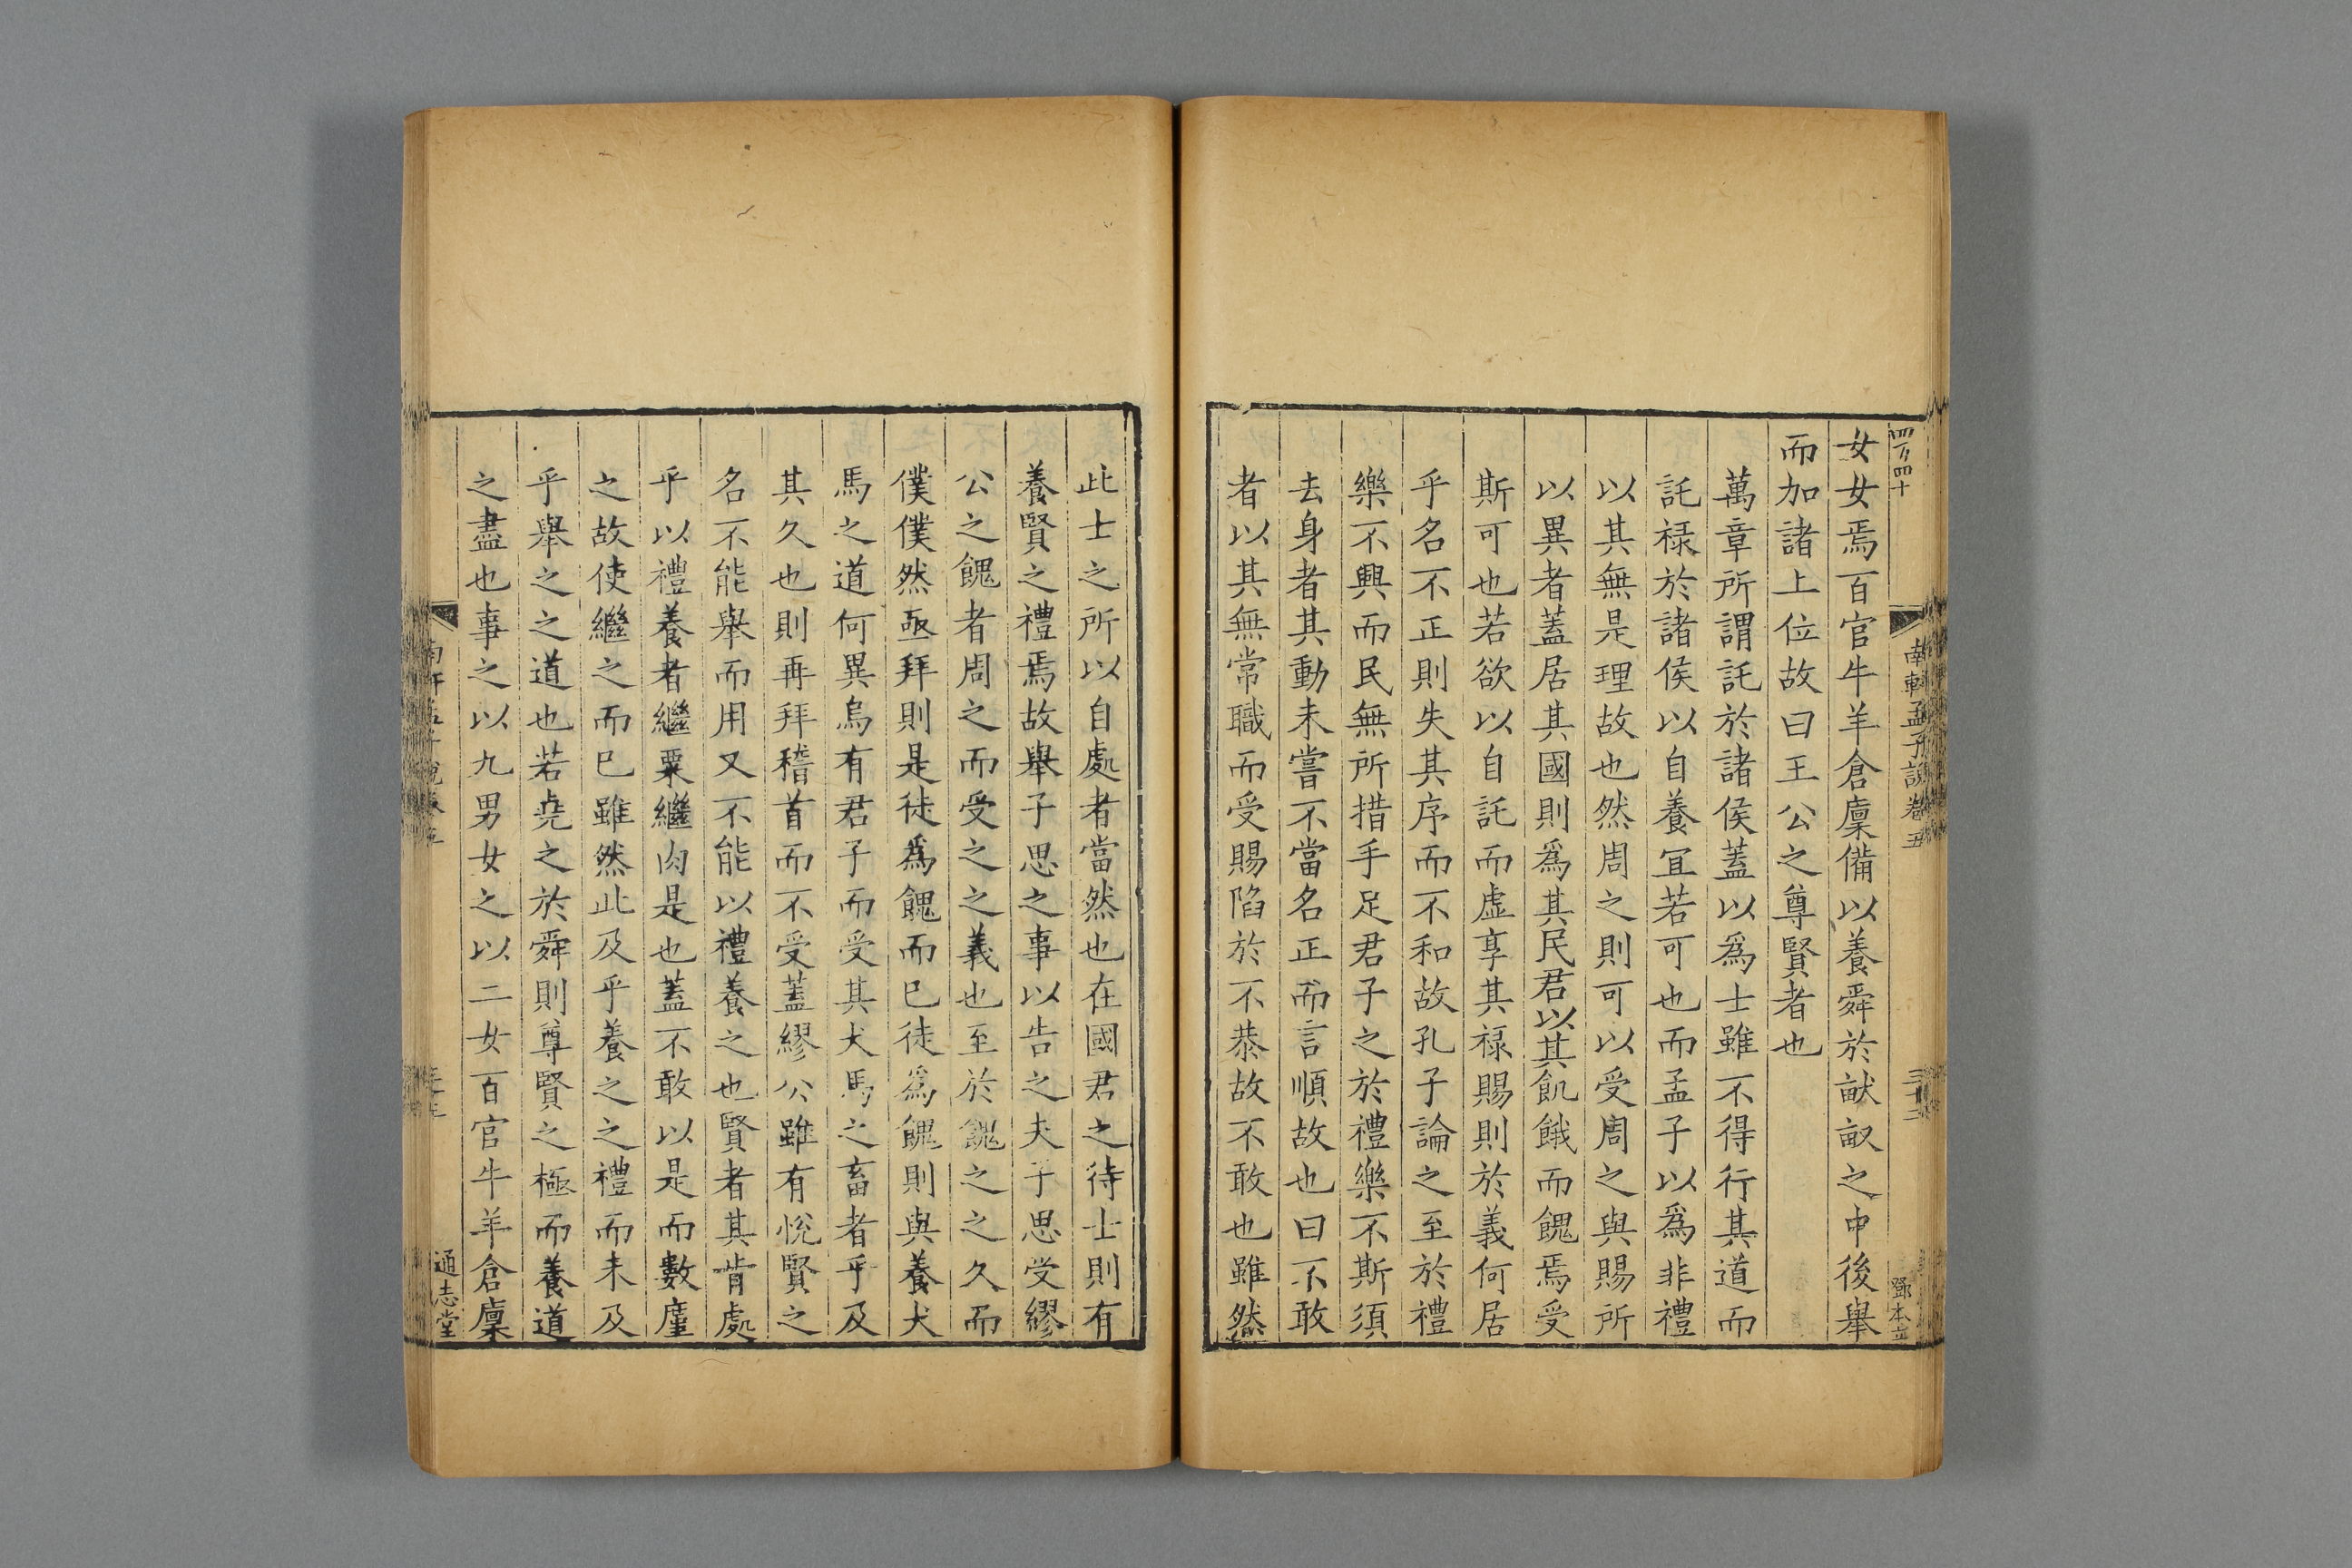 女女焉百官牛羊倉廩備以養舜於畎畝之中後舉
而加諸上位故曰王公之尊賢者也
萬章所謂託於諸侯蓋以爲士雖不得行其道而
託祿於諸侯以自養宜若可也而孟子以爲非禮
以其無是理故也然周之則可以受周之與賜所
以異者蓋居其國則爲其民君以其飢餓而餽焉受
斯可也若欲以自託而虛享其祿賜則於義何居
乎名不正則失其序而不和故孔子論之至於禮
樂不興而民無所措手足君子之於禮樂不斯須
去身者其動未嘗不當名正而言順故也曰不敢
者以其無常職而受賜陷於不恭故不敢也雖然
南軒孟子說卷五
三十三
鄧本立
此士之所以自處者當然也在國君之待士則有
養賢之禮焉故舉子思之事以告之夫子思受繆
公之餽者周之而受之之義也至於餽之之久而
僕僕然亟拜則是徒爲餽而已徒爲餽則與養犬
馬之道何異烏有君子而受其犬馬之畜者乎及
其久也則再拜稽首而不受蓋繆公雖有悅賢之
名不能舉而用又不能以禮養之也賢者其肯處
乎以禮養者繼粟繼肉是也蓋不敢以是而數廑
之故使繼之而已雖然此及乎養之之禮而未及
乎舉之之道也若堯之於舜則尊賢之極而養道
之盡也事之以九男女之以二女百官牛羊倉廩
通志堂